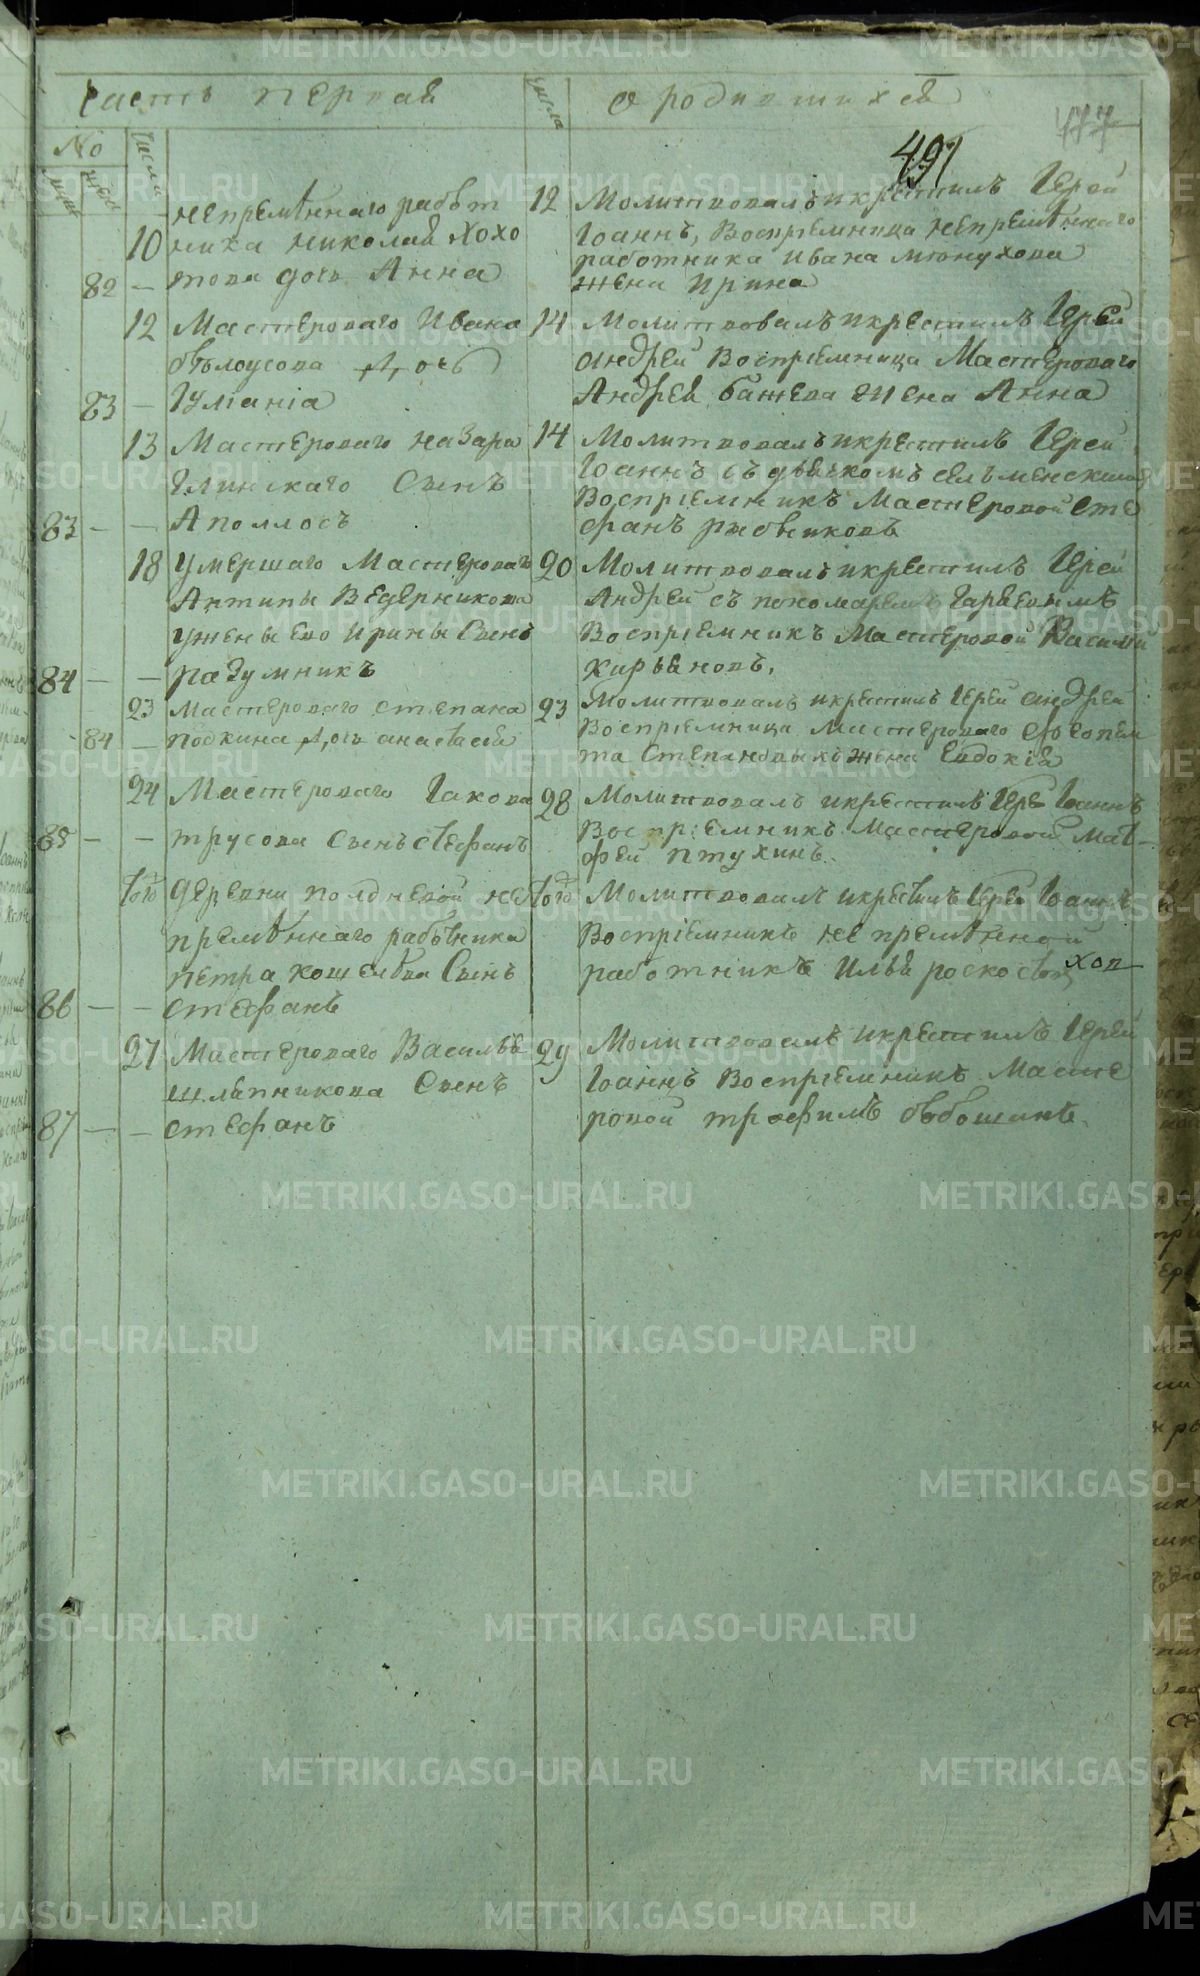 часть первая
числа
о родившихся
177
491
No
числа
непремѣннаго работ
10 ника николая Хохо
82 — това дочь Анна
12 Молитвовалъ и крестилъ Іерей
Іоаннъ, Воспріемница непремѣннаго
работника Ивана
жена Ирина
12 Мастероваго Ивана
бѣлоусова Дочь
83 — Іуліанія
14 Молитвовалъ и крестилъ Іерей
андрей Воспріемница Мастероваго
Андрея бажева жена Анна
13 Мастероваго назара
Глинскаго Сынъ
83 — — Аполлосъ
14 Молитвовалъ и крестилъ Іерей
Іоаннъ съ дьячкомъ
Воспріемникъ Мастеровой сте
фанъ рыбниковъ
18 умершаго Мастероваго
Антипы Ведерникова
ужены его Ирины Сынъ
84 — — разумникъ
20 Молитвовалъ и крестилъ Іерей
Андрей съ пономаремъ
Воспріемникъ Мастеровой Василій
кирьяновъ,
23 мастероваго степана
84 — подкина Дочь анастасія
23 Молитвовалъ и крестилъ Іерей андрей
Воспріемница Мастероваго
степановыхъ жена Евдокія
24 Мастероваго Іакова
85 — — трусова Сынъ стефанъ
28 Молитвовалъ и крестилъ Іерей Іоаннъ
Воспріемникъ Мастеровой мат
фей птухинъ.
того деревни полдневой не
премѣннаго работника
петра кошелева Сынъ
86 — — стефанъ
того Молитвовалъ и крестилъ Іерей Іоаннъ
Воспріемникъ непремѣнной
работникъ Илья
27 Мастероваго Василья
шляпникова Сынъ
87 — — стефанъ
29 Молитвовалъ и крестилъ Іерей
Іоаннъ Воспріемникъ Масте
ровой трофимъ бабошинъ.
METRIKI.GASO-URAL.RU